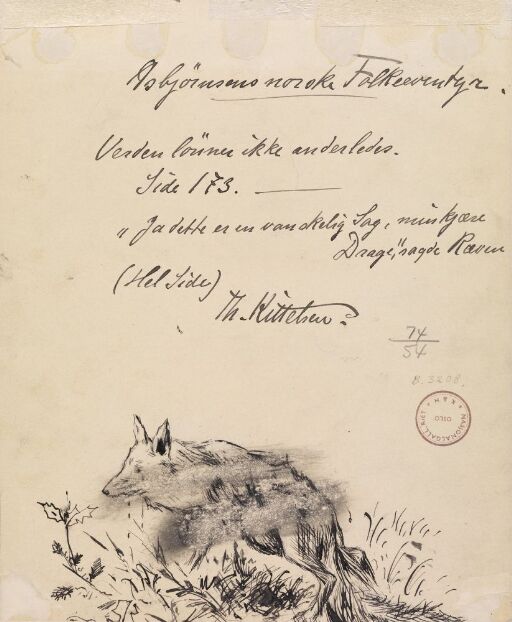 Asbjörnsens norske Folkeeventyr.
Verden lönner ikke anderledes.
Side 173.
"Ja dette er en vanskelig Sag, min kjære
Drage", sagde Ræven
(Hel Side)
Th. Kittelsen.
74
54
B. 3208.
NASJONALGALLERIET
OSLO